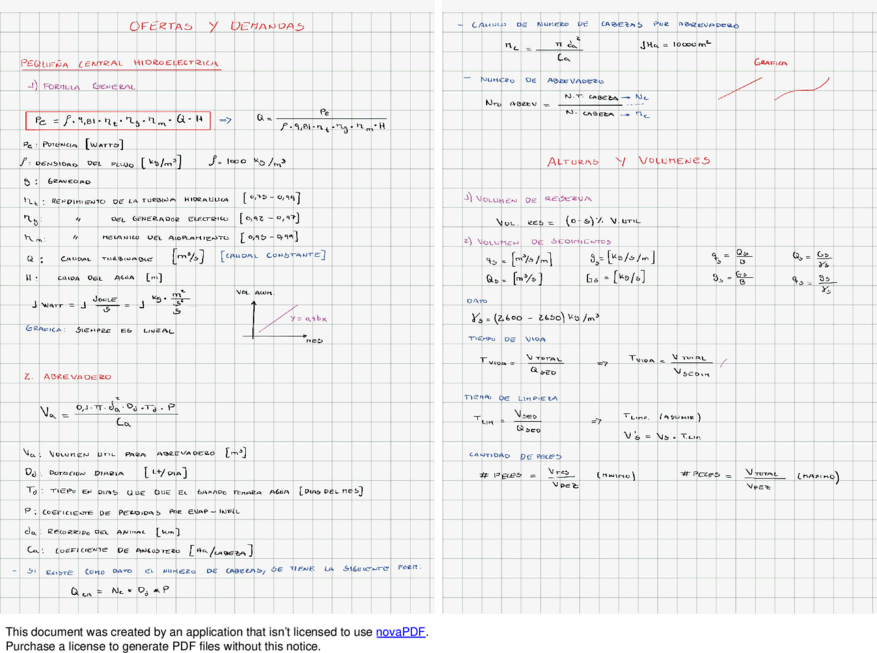 OFERTAS Y DEMANDAS
PEQUEÑA CENTRAL HIDROELECTRICA
1) FORMULA GENERAL
Pc = ρ · 9,81 · ηt · ηg · ηm · Q · H => Q = Pc / ρ · 9,81 · ηt · ηg · ηm · H
Pc: POTENCIA [WATTS]
ρ: DENSIDAD DEL FLUJO [kg/m³] ρ = 1000 kg/m³
g: GRAVEDAD
ηt: RENDIMIENTO DE LA TURBINA HIDRAULICA [0,75 - 0,94]
ηg: " DEL GENERADOR ELECTRICO [0,92 - 0,97]
ηm: " MECANICO DEL ACOPLAMIENTO [0,95 - 0,99]
Q: CAUDAL TURBINABLE [m³/s] [CAUDAL CONSTANTE]
H: CAIDA DEL AGUA [m]
1 WATT = 1 JOULE / s = 1 kg · m²/s² / s
GRAFICA: SIEMPRE ES LINEAL
VOL. ACUM.
y = a+bx
MES
2. ABREVADERO
Va = 0,1 · π · da² · Dd · Td · P / Ca
Va: VOLUMEN UTIL PARA ABREVADERO [m³]
Dd: DOTACION DIARIA [Lt/DIA]
Td: TIEPO EN DIAS QUE QUE EL GANADO TOMARA AGUA [DIAS DEL MES]
P: COEFICIENTE DE PERDIDAS POR EVAP - INFIL
da: RECORRIDO DEL ANIMAL [km]
Ca: COEFICIENTE DE ANGOSTERO [Ha/CABEZA]
- SI EXISTE COMO DATO EL NUMERO DE CABEZAS, SE TIENE LA SIGUIENTE FORM:
Nc * Dd * P
- CALCULO DE NUMERO DE CABEZAS POR ABREVADERO
nc = π da² / Ca 1Ha = 10000 m²
GRAFICA
- NUMERO DE ABREVADERO
Nro ABREV = N.T. CABEZA → Nc / N. CABEZA → nc
ALTURAS Y VOLUMENES
1) VOLUMEN DE RESERVA
VOL. RES = (0-5)% V.UTIL
2) VOLUMEN DE SEDIMENTOS
qs = [m³/s/m] gs = [kg/s/m] qs = Qs / B Qs = Gs / γs
Qs = [m³/s] Gs = [kg/s] gs = Gs / B qs = gs / γs
DATO
γs = (2600 - 2650) kg/m³
TIEMPO DE VIDA
TVIDA = VTOTAL / QSED => TVIDA = VTOTAL / VSEDIM
TIEMPO DE LIMPIEZA
TLIM = VSED / QSED => TLIMP. (ASUMIR)
V's = Vs * TLIM
CANTIDAD DE PECES
# PECES = VRES / VPEZ (MINIMO) # PECES = VTOTAL / VPEZ (MAXIMO)
This document was created by an application that isn't licensed to use novaPDF.
Purchase a license to generate PDF files without this notice.